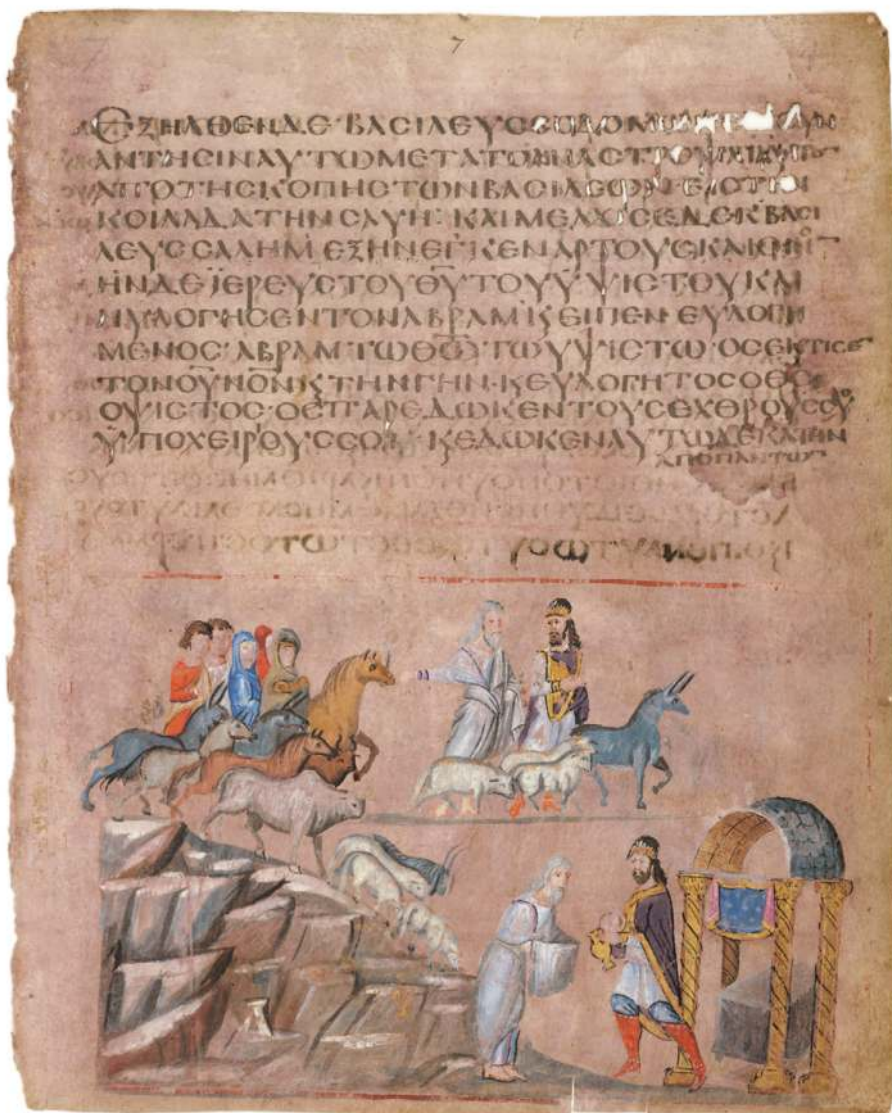 7
ΕΞΗΛΘΕΝΔΕ·ΒΑCΙΛΕΥCCΟΔΟΜΩΝ
ΑΝΤΗCΙΝΑΥΤΩΜΕΤΑΤΟΑΝΑCΤΡΕΨΑΙΑΥΤΟ̅
ΑΠΟΤΗCΚΟΠΗCΤΩΝΒΑCΙΛΕΩΝ·ΕΙCΤΗΝ
ΚΟΙΛΑΔΑΤΗΝCΑΥΗ·ΚΑΙΜΕΛΧΙCΕΔΕΚΒΑCΙ
ΛΕΥCCΑΛΗΜΕΞΗΝΕΓΚΕΝΑΡΤΟΥCΚΑΙΟΙΝΟ̅
ΗΝΔΕΪΕΡΕΥCΤΟΥΘ̅Υ̅ΤΟΥΥΨΙCΤΟΥΚΑΙ
ΗΥΛΟΓΗCΕΝΤΟΝΑΒΡΑΜ·ΚΕΙΠΕΝ·ΕΥΛΟΓΗ
ΜΕΝΟC·ΑΒΡΑΜ·ΤΩΘ̅Ω̅ΤΩΥΨΙCΤΩ·ΟCΕΚΤΙCΕ̅
ΤΟΝΟΥΝΟΝΚΤΗΝΓΗΝ·ΚΕΥΛΟΓΗΤΟCΟΘ̅C̅
ΟΥΙCΤΟC·ΟCΠΑΡΕΔΩΚΕΝΤΟΥCΕΧΘΡΟΥCCΟΥ
ΥΠΟΧΕΙΡΟΥCCΟΙ·ΚΕΔΩΚΕΝΑΥΤΩΔΕΚΑΤΗΝ
ΑΠΟΠΑΝΤΩ̅